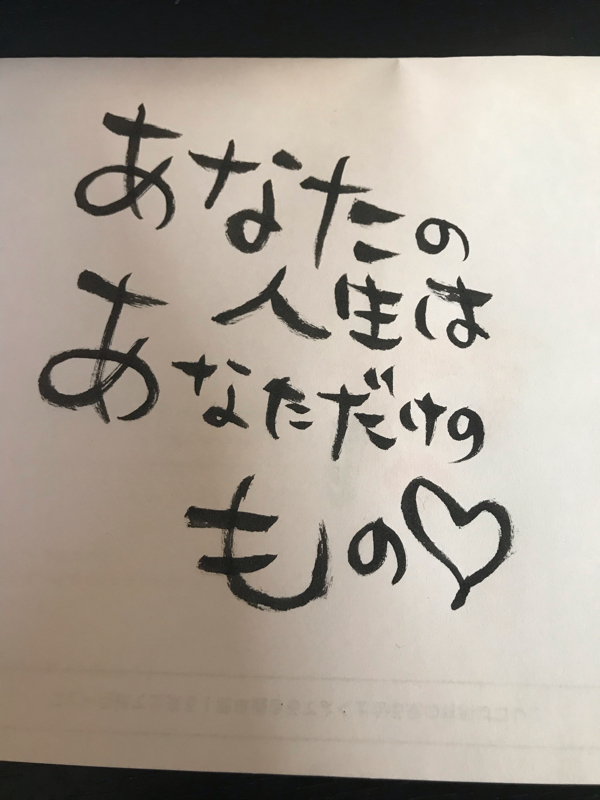 あなたの
人生は
あなただけの
もの♡